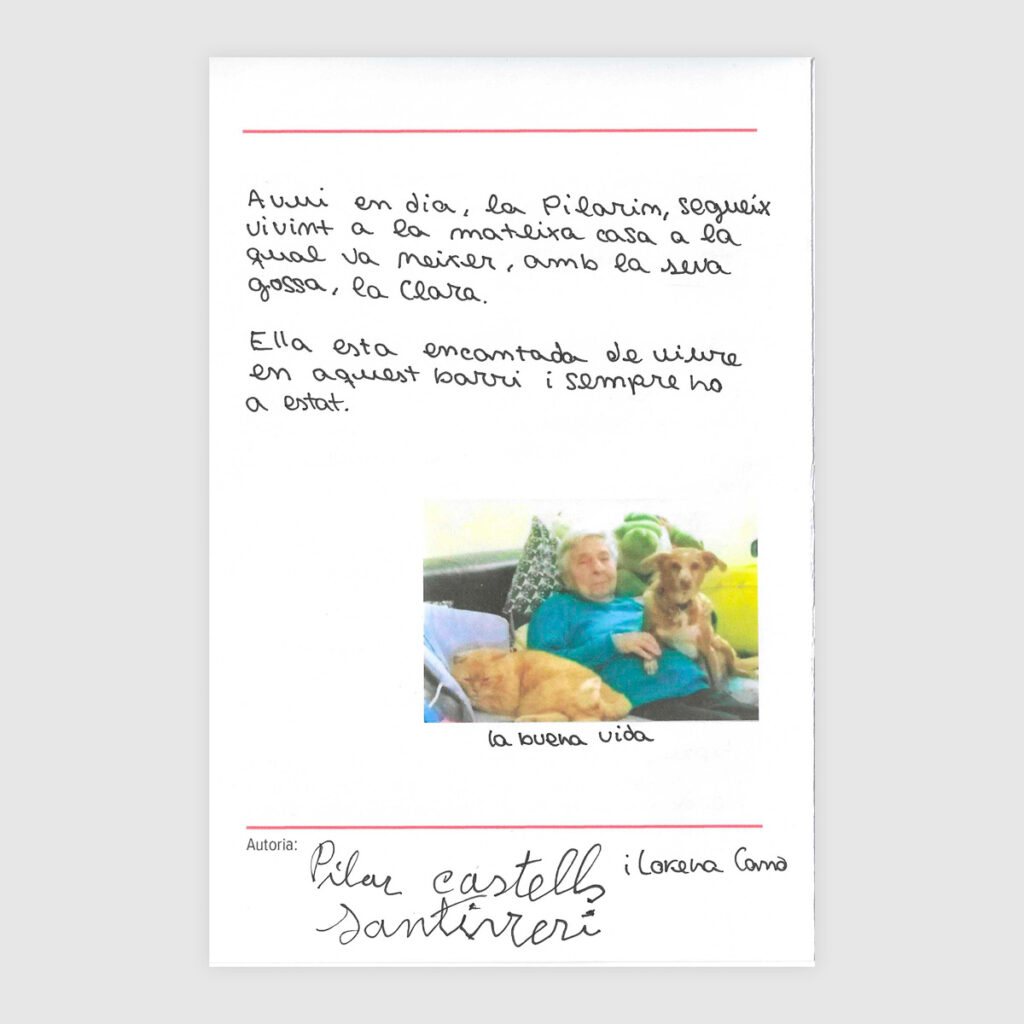 Avui en dia, la Pilarin, segueix
vivint a la mateixa casa a la
qual va neixer, amb la seva
gossa, la Clara.
Ella esta encantada de viure
en aquest barri i sempre ho
a estat.
la buena vida
Autoria:
Pilar Castells i Lorena
Santirreri